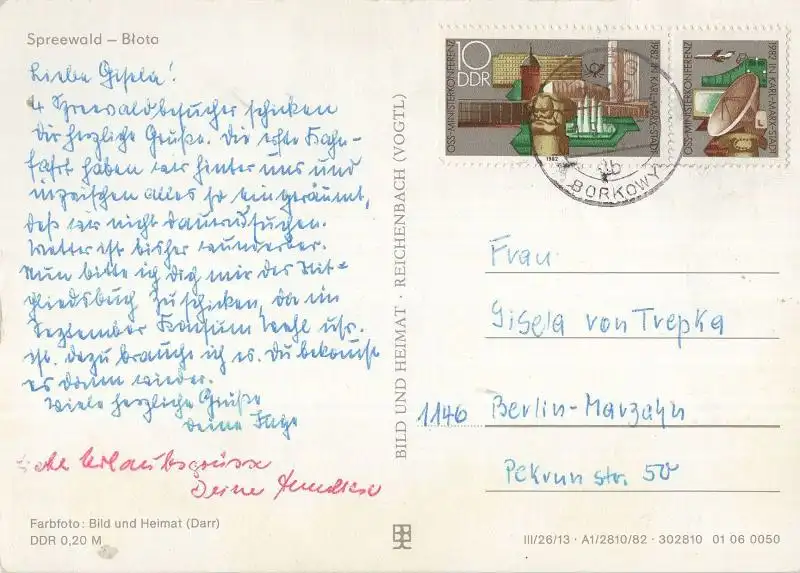 Spreewald – Błota
Liebe Gisela!
4 Spreewaldbesucher schicken
Dir herzliche Grüße. Die erste Kahn-
fahrt haben wir hinter uns und
inzwischen alles so eingeräumt,
daß wir nicht dauernd suchen.
Wetter ist bisher wunderbar.
Nun bitte ich Dich mir das Mit-
gliedsbuch zu schicken, da im
September Konsum Wahl usw.
ist. dazu brauche ich es. Du bekommst
es dann wieder.
Viele herzliche Grüße
Deine
Urlaubsgrüsse
Deine
Farbfoto: Bild und Heimat (Darr)
DDR 0,20 M
BILD UND HEIMAT · REICHENBACH (VOGTL)
10
DDR
OSS-MINISTERKONFERENZ
1982 IN KARL-MARX-STADT
1982
OSS-MINISTERKONFERENZ
1982 IN KARL-MARX-STADT
BORKOWY
Frau
Gisela von Trepka
1146 Berlin-Marzahn
Pekrun str. 50
III/26/13 · A1/2810/82 · 302810 01 06 0050